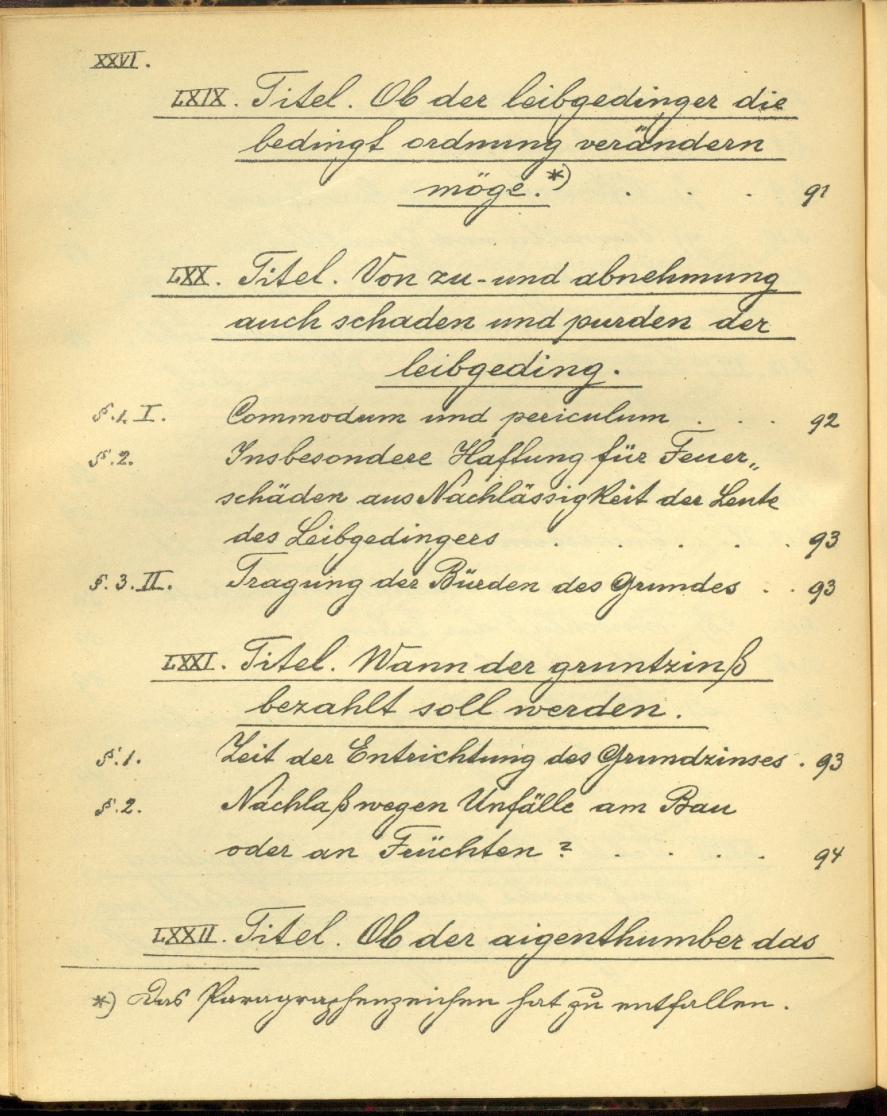 XXVI.
LXIX. Titel. Ob der leibgedinger die
bedingt ordnung verändern
möge.*) . . . 91
LXX. Titel. Von zu- und abnehmung
auch schaden und purden der
leibgeding.
§.1. I. Commodum und periculum . . . 92
§.2. Insbesondere Haftung für Feuer„
schäden aus Nachlässigkeit der Leute
des Leibgedingers . . . . . 93
§.3. II. Tragung der Bürden des Grundes . . 93
LXXI. Titel. Wann der gruntzinß
bezahlt soll werden.
§.1. Zeit der Entrichtung des Grundzinses . 93
§.2. Nachlaß wegen Unfälle am Bau
oder an Früchten ? . . . . 94
LXXII. Titel. Ob der aigenthumber das
*) Das Paragraphenzeichen hat zu entfallen.